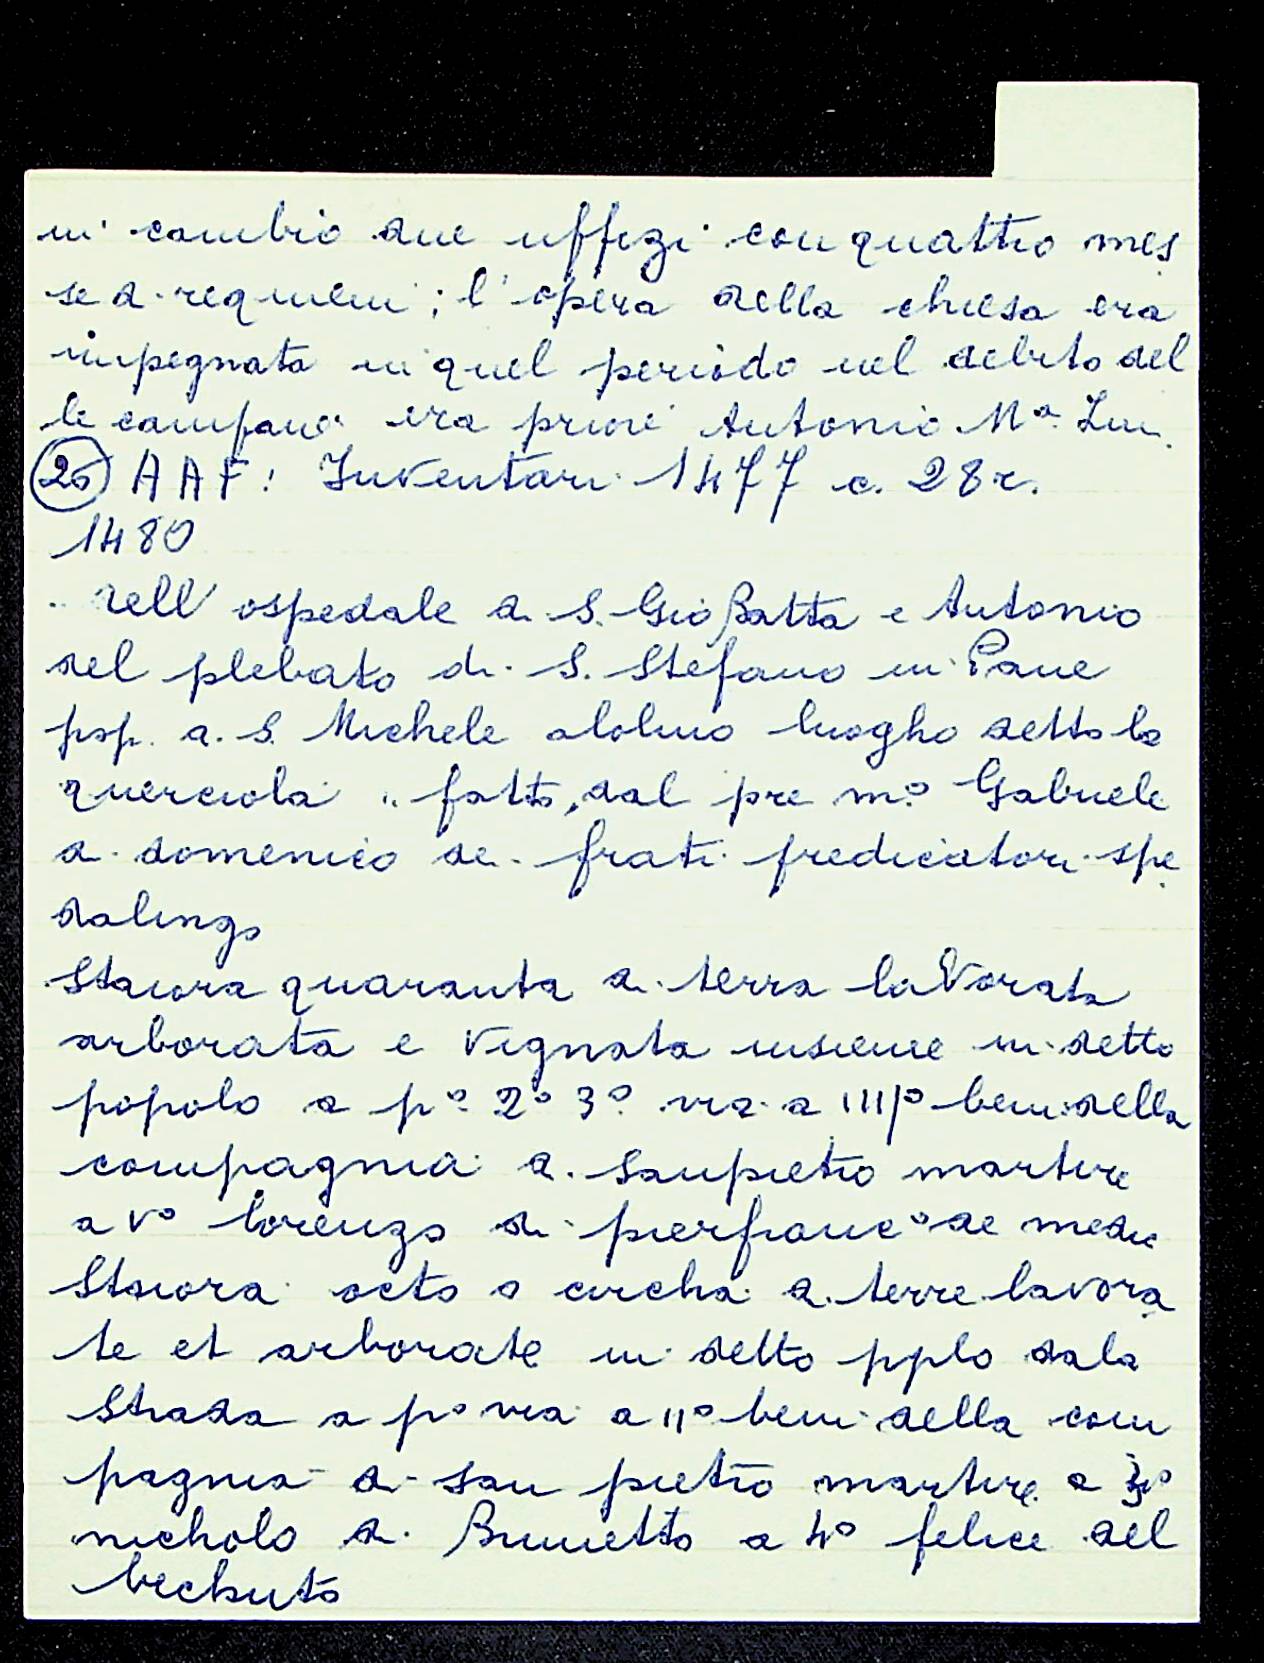 in cambio due uffizi con quattro mes
se di requiem; l'opera della chiesa era
impegnata in quel periodo nel debito del
le campane era priore Antonio Mª
20 AAF: Inventari 1477 c. 28 r.
1480
.. dell'ospedale di S. Gio Batta e Antonio
del plebato di S. Stefano in Pane
pop. di S. Michele luogho detto la
querciola .. fatto, dal pre mº Gabriele
di domenico de frati predicatori spe
dalingo
Staiora quaranta di terra lavorata
arborata e vignata insieme in detto
popolo a pº 2º 3º via a IIIIº beni della
compagnia di Sanpietro martire
a Vº lorenzo di pierfrancº de medic
Staiora octo o circha di terre lavora
te et arborate in detto pplo dala
Strada a pº via a IIº beni della com
pagnia di San pietro martire a 3º
nicholo di Brunetto a 4º felice del
bechuto